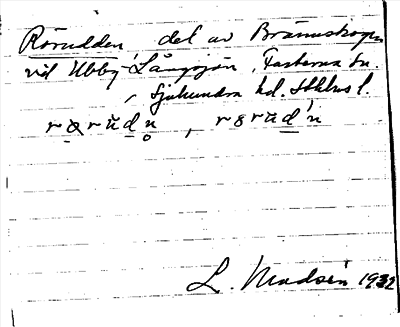 Rörudden, del av Brännskogen
vid Ubby-Långsjön, Fasterna sn.
Sjuhundra hd. Sthlms l.
L. Madsén 1932